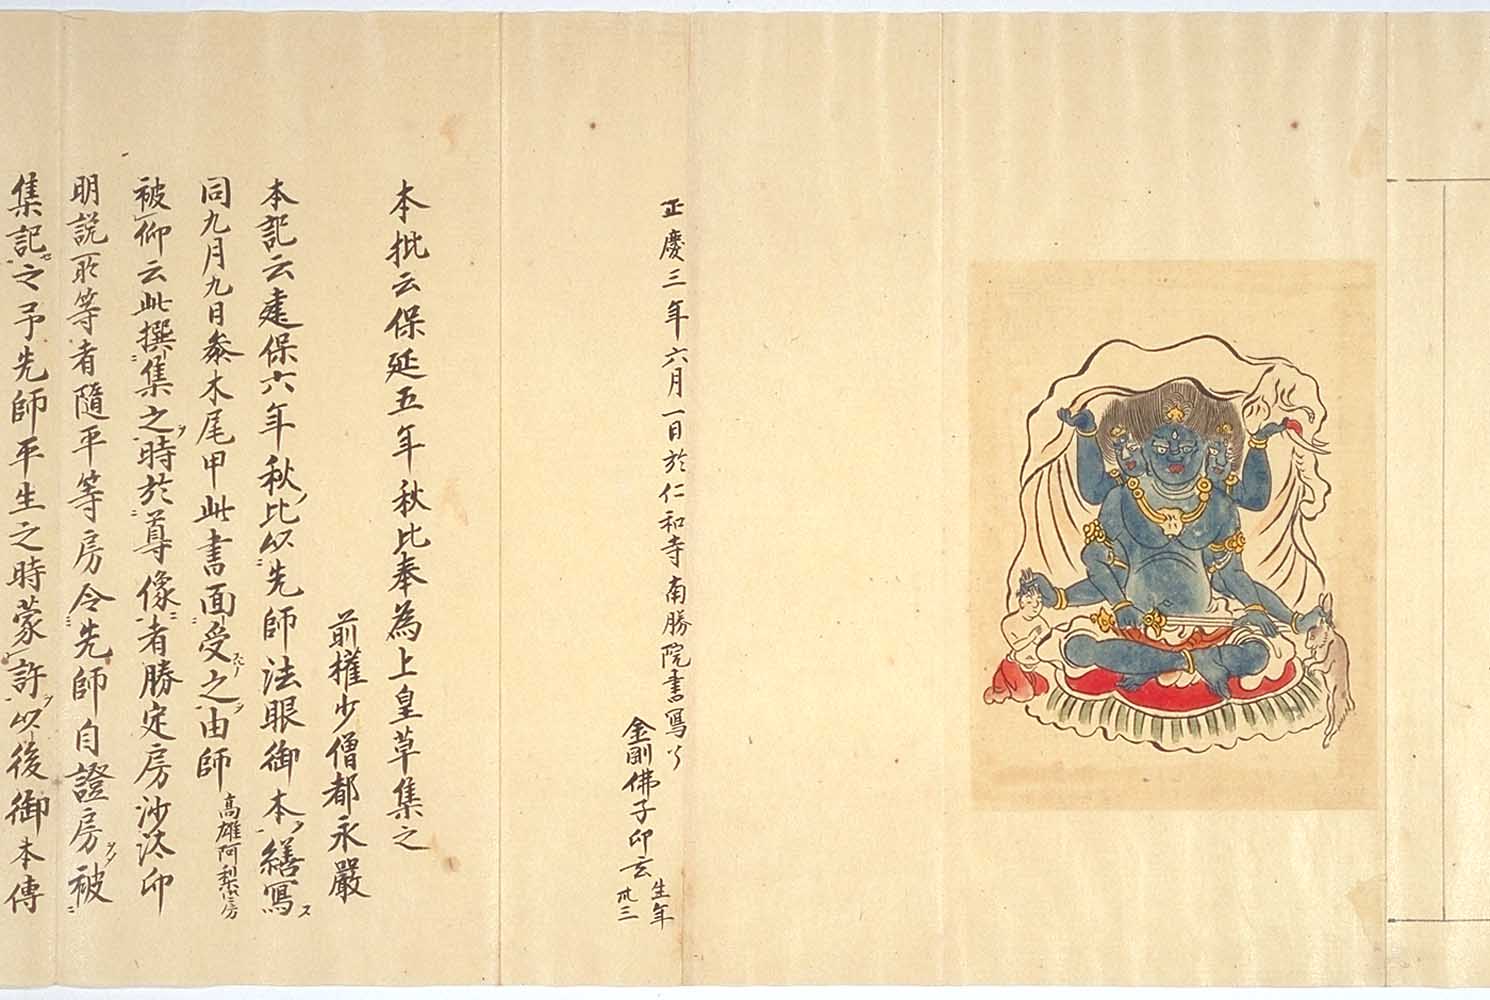 正慶三年六月一日於仁和寺南勝院書寫了
金剛佛子印玄
生年
卅三
本批云保延五年秋比奉為上皇草集之
前權少僧都永嚴
本記云建保六年秋比以先師法眼御本繕寫ス
同九月九日参木尾甲此書面受之由師
高雄阿梨仁房
被仰云此撰集之時於尊像者勝定房沙汰印
明説所等者隨平等房令先師自證房被
集記之予先師平生之時蒙許以後御本傳